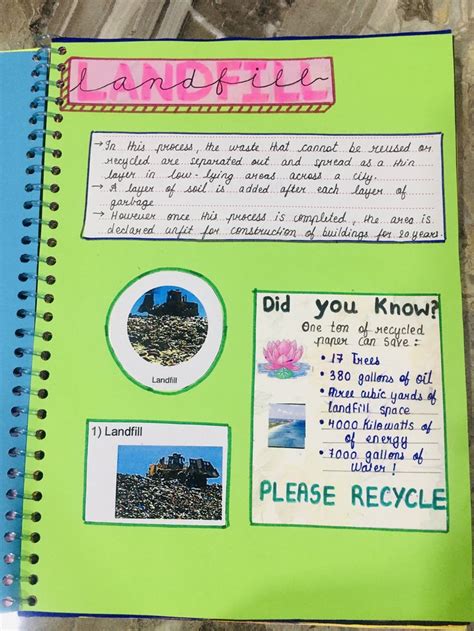 LANDFILL
landfill
→ In this process, the waste that cannot be reused or
recycled are separated out and spread as a thin
layer in low-lying areas across a city.
→ A layer of soil is added after each layer of
garbage
→ However once this process is completed, the area is
declared unfit for construction of buildings for 20 years.
Landfill
1) Landfill
Did you Know?
One ton of recycled
paper can save :
• 17 Trees
• 380 gallons of oil
• three cubic yards of
landfill space
• 4000 Kilowatts of
of energy
• 7000 gallons of
water !
PLEASE RECYCLE